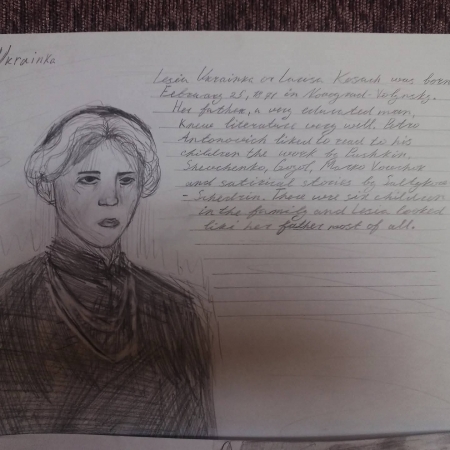 Ukrainka
Lesia Ukrainka or Larisa Kosach was born
February 25, 1871 in Novograd-Volynsky.
Her father, a very educated man,
knew literature very well. Petro
Antonovich liked to read to his
children the work by Pushkin,
Shevchenko, Gogol, Marko Vovchok
and satirical stories by Saltykov
- Schedrin. There were six children
in the family and Lesia looked
like her father most of all.